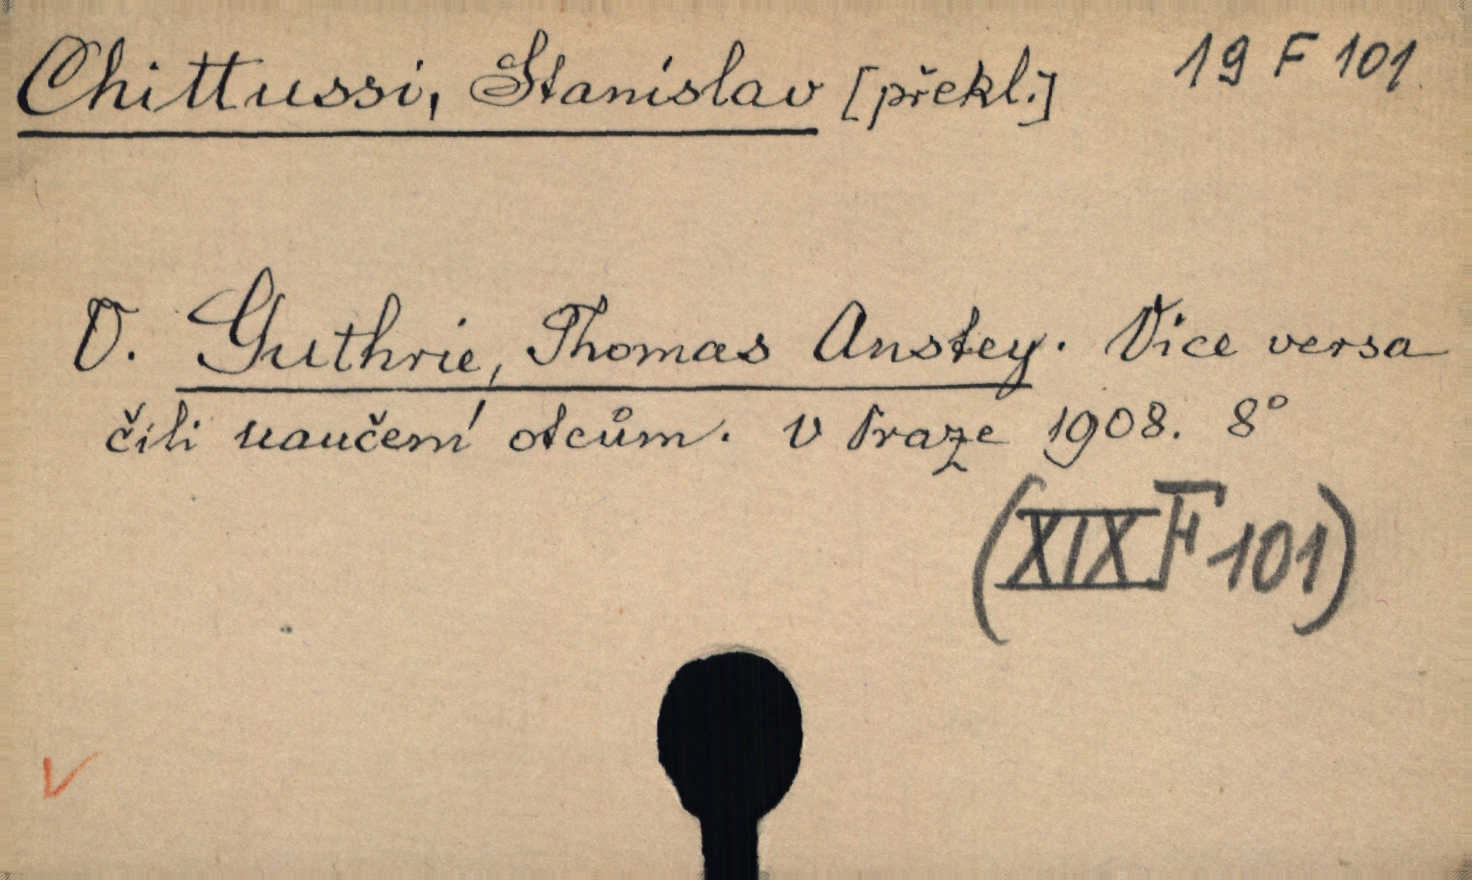 Chittussi, Stanislav [překl.] 19 F 101
V. Guthrie, Thomas Anstey. Vice versa
čili naučení otcům. V Praze 1908. 8°
(XIX F 101)